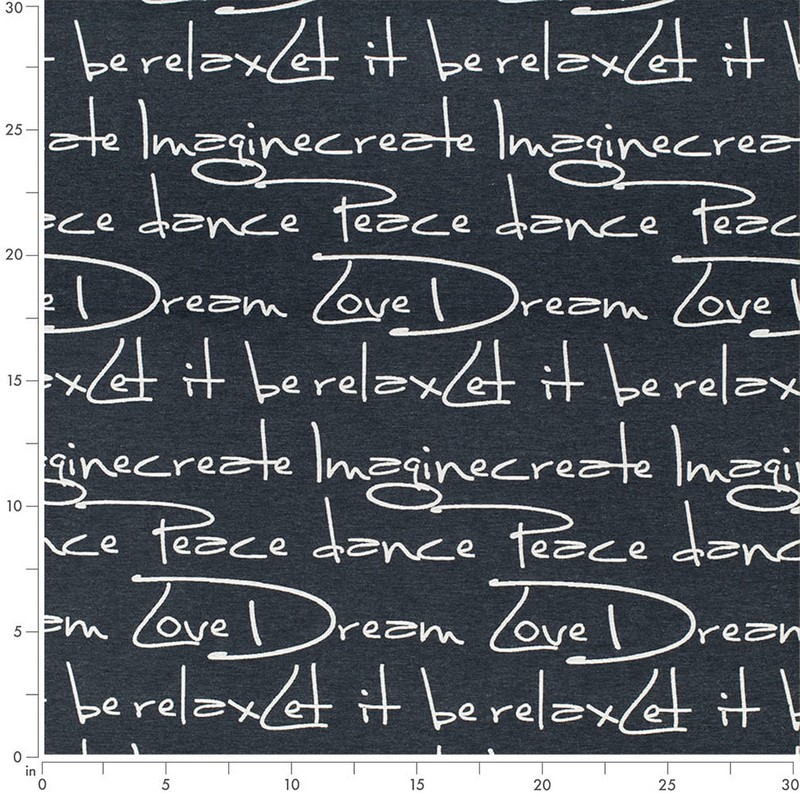 30
be relax Let it be relax Let it
25
ate Imagine create Imagine crea
ace dance Peace dance Peac
20
e Dream Love Dream Love
15
ax Let it be relax Let it be relax
gine create Imagine create Imagi
10
nce Peace dance Peace danc
5
am Love Dream Love Dream
be relax Let it be relax Let it b
0
in
0 5 10 15 20 25 30